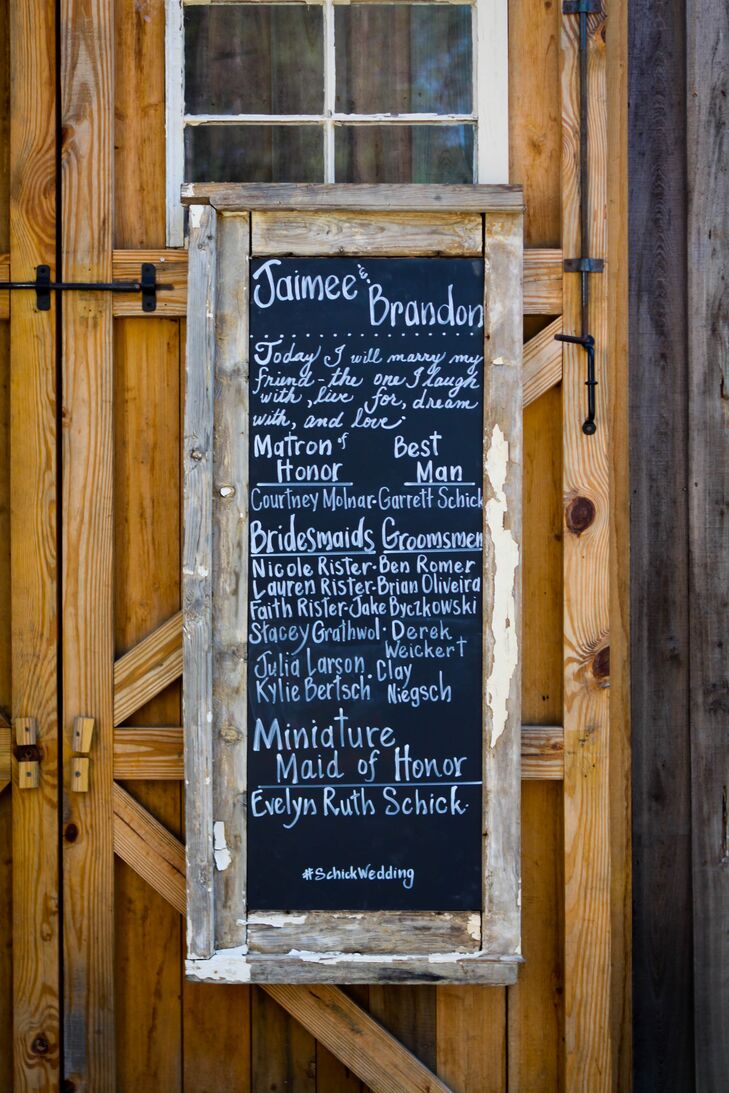 Jaimee &
Brandon
Today I will marry my
friend - the one I laugh
with, live for, dream
with, and love.
Matron of Best
Honor Man
Courtney Molnar · Garrett Schick
Bridesmaids Groomsmen
Nicole Rister · Ben Romer
Lauren Rister · Brian Oliveira
Faith Rister · Jake Byczkowski
Stacey Grathwol · Derek
Weickert
Julia Larson · Clay
Kylie Bertsch Niegsch
Miniature
Maid of Honor
Evelyn Ruth Schick
#SchickWedding